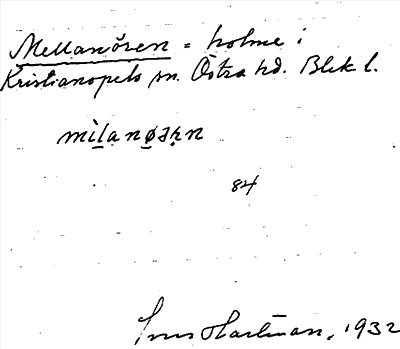 Mellanören = holme i
Kristianopels sn. Östra hd. Blek l.
mìlanøən
84
Hartman, 1932